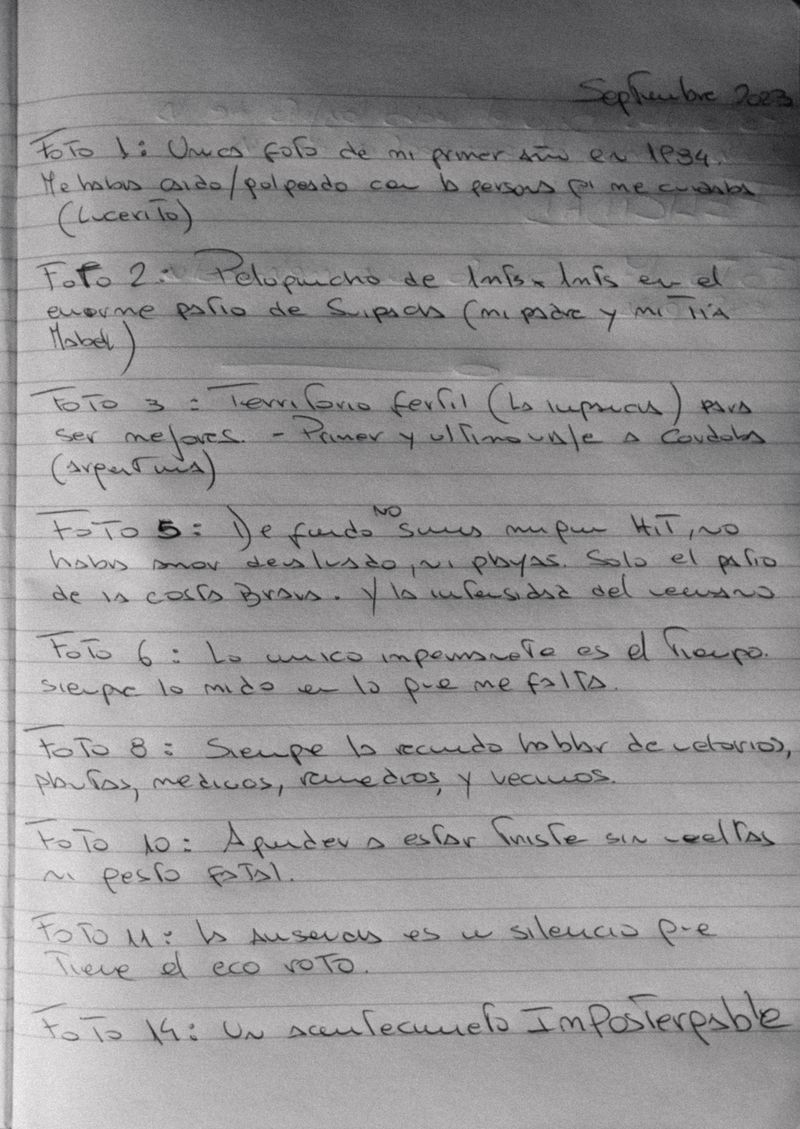 Septiembre 2023
FoTo 1: Unica foto de mi primer año en 1934.
Me habia caido/golpeado con la persona q' me cuidaba
(Lucerito)
FoTo 2: Pelopincho de 1mts x 1mts en el
enorme patio de Suipacha (mi padre y mi Tía
Mabel)
FoTo 3: Territorio fertil (la infancia) para
ser mejores. - Primer y ultimo viaje a Cordoba
(argentina)
FoTo 5: De fondo NO suena ningun HiT, no
habia amor deslusado, ni playas. Solo el patio
de la costa Brava. Y la intensidad del verano
FoTo 6: Lo unico impermanete es el Tiempo.
siempre lo mido en lo que me falta.
FoTo 8: Siempre la recuerdo hablar de velorios,
plantas, medicos, remedios, y vecinos.
FoTo 10: Aprender a estar Triste sin vueltas
ni gesto fatal.
FoTo 11: la ausencia es un silencio que
Tiene el eco roto.
FoTo 14: Un acontecimieto Impostergable